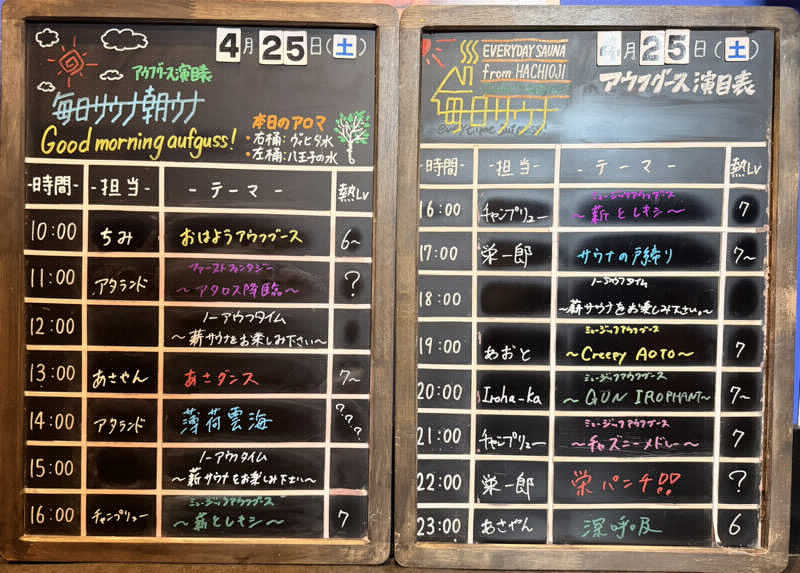 4月25日(土)
アウフグース演目表
毎日サウナ朝ウナ
Good morning aufguss!
本日のアロマ
・右桶:ヴィヒタ水
・左桶:八王子の水
-時間- -担当- -テーマ- 熱Lv
10:00 ちみ おはようアウフグース 6~
11:00 アタランド ファーストファンタジー ?
~アタロス降臨~
12:00 ノーアウフタイム
~薪サウナをお楽しみ下さい~
13:00 あさやん あさダンス 7~
14:00 アタランド 薄荷雲海 ???
15:00 ノーアウフタイム
~薪サウナをお楽しみ下さい~
16:00 チャンプリュー ミュージックアウフグース 7
~薪とレキシ~
月25日(土)
EVERYDAY SAUNA
from HACHIOJI
アウフグース演目表
毎日サウナ
-時間- -担当- -テーマ- 熱Lv
16:00 チャンプリュー ミュージックアウフグース 7
~薪とレキシ~
17:00 栄一郎 サウナの戸締り 7~
18:00 ノーアウフタイム
~薪サウナをお楽しみ下さい。~
19:00 あおと ミュージックアウフグース 7
~Creepy AOTO~
20:00 Iroha-ka ミュージックアウフグース 7~
~GUN IROPHANT~
21:00 チャンプリュー ミュージックアウフグース 7
~チャズニーメドレー~
22:00 栄一郎 栄パンチ!! ?
23:00 あさやん 深呼吸 6